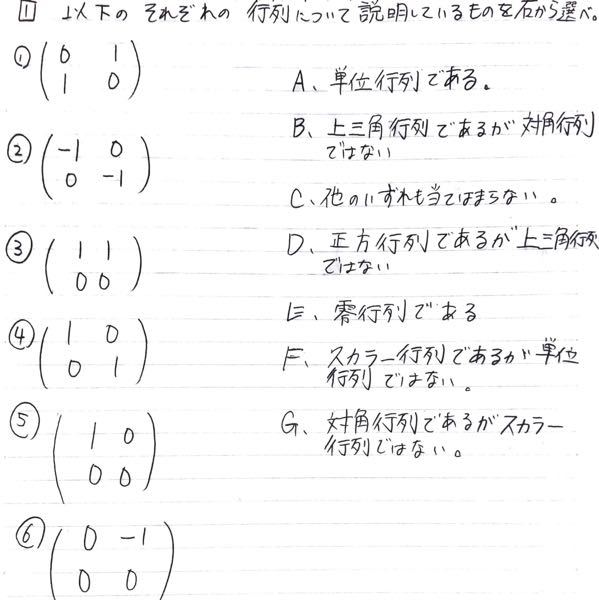 1 以下の それぞれの 行列について説明しているものを右から選べ。
① ( 0 1
1 0 )
A、単位行列である。
B、上三角行列であるが対角行列
ではない
② ( -1 0
0 -1 )
C、他のいずれも当てはまらない。
③ ( 1 1
0 0 )
D、正方行列であるが上三角行列
ではない
E、零行列である
④ ( 1 0
0 1 )
F、スカラー行列であるが単位
行列ではない。
⑤ ( 1 0
0 0 )
G、対角行列であるがスカラー
行列ではない。
⑥ ( 0 -1
0 0 )